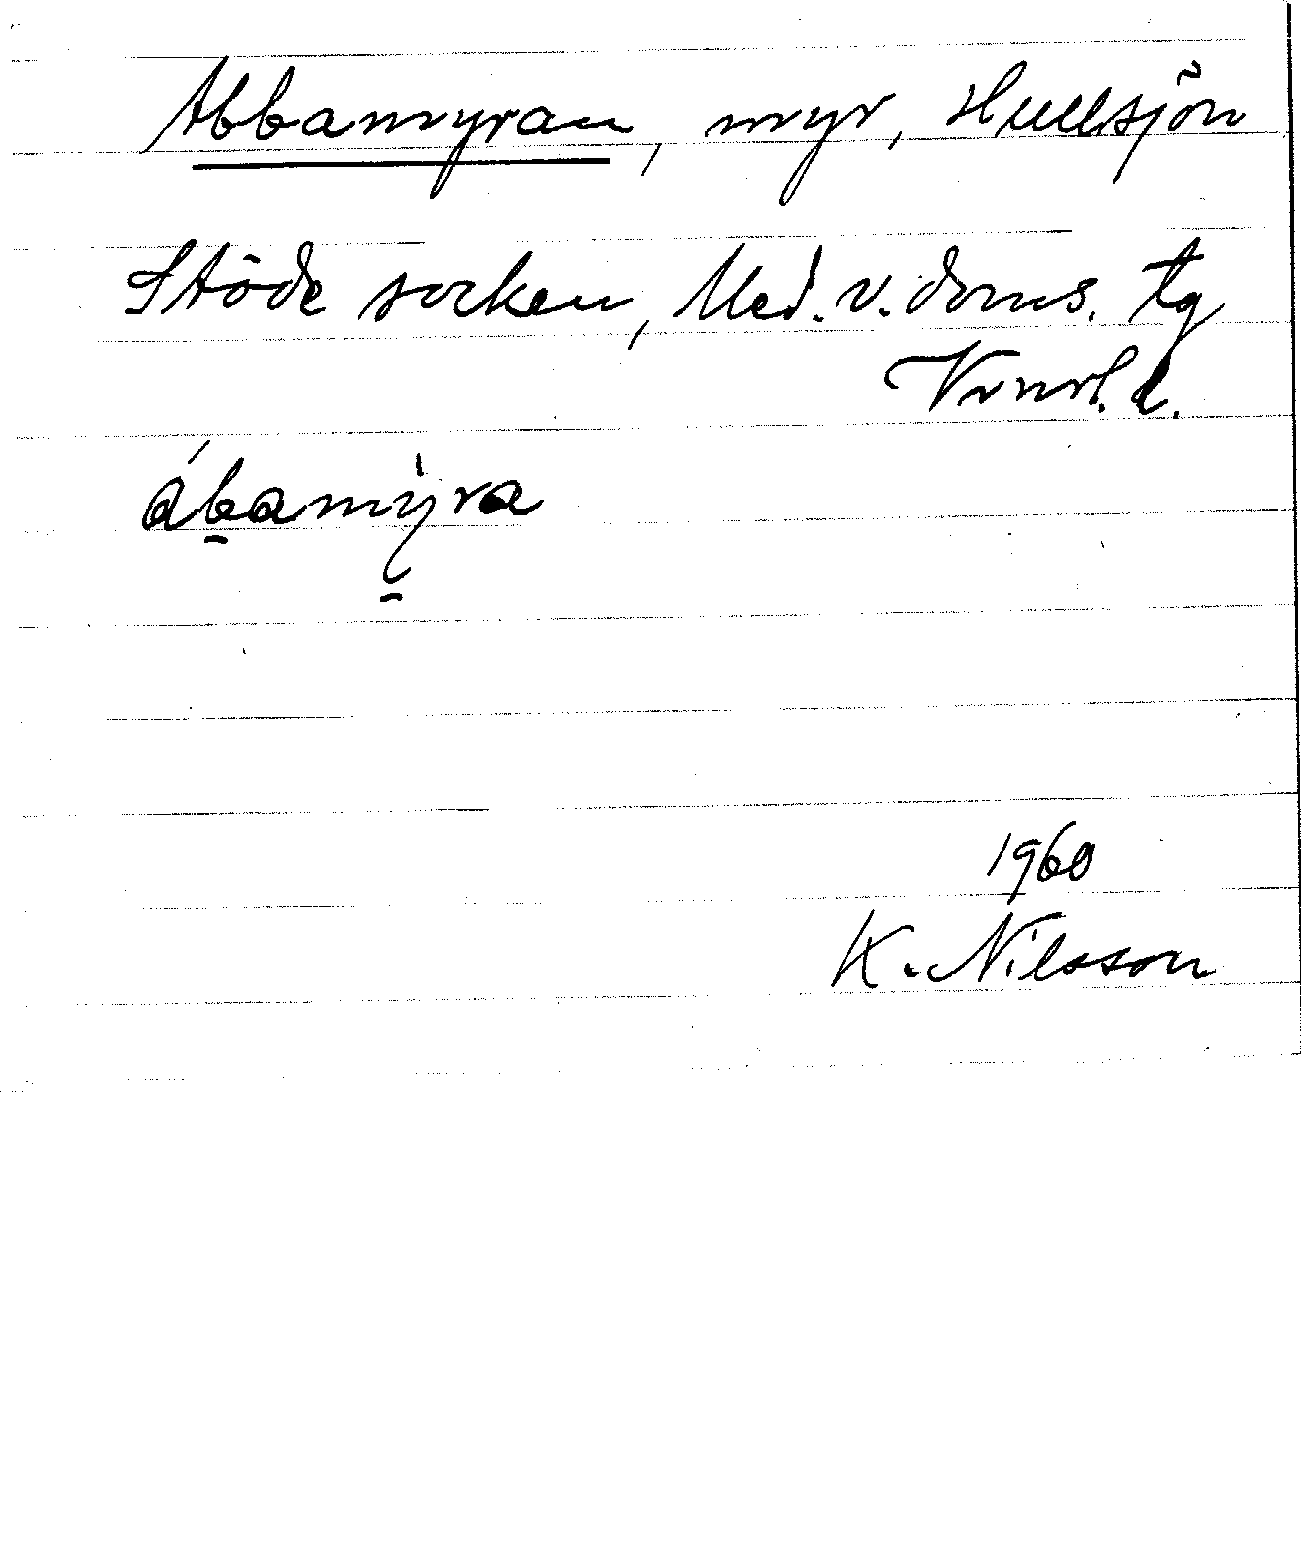 Abbamyran, myr, Hullsjön
Stöde socken, Med. v. doms. tg
Vrnrl. l.
ábamỳra
1960
K. Nilsson